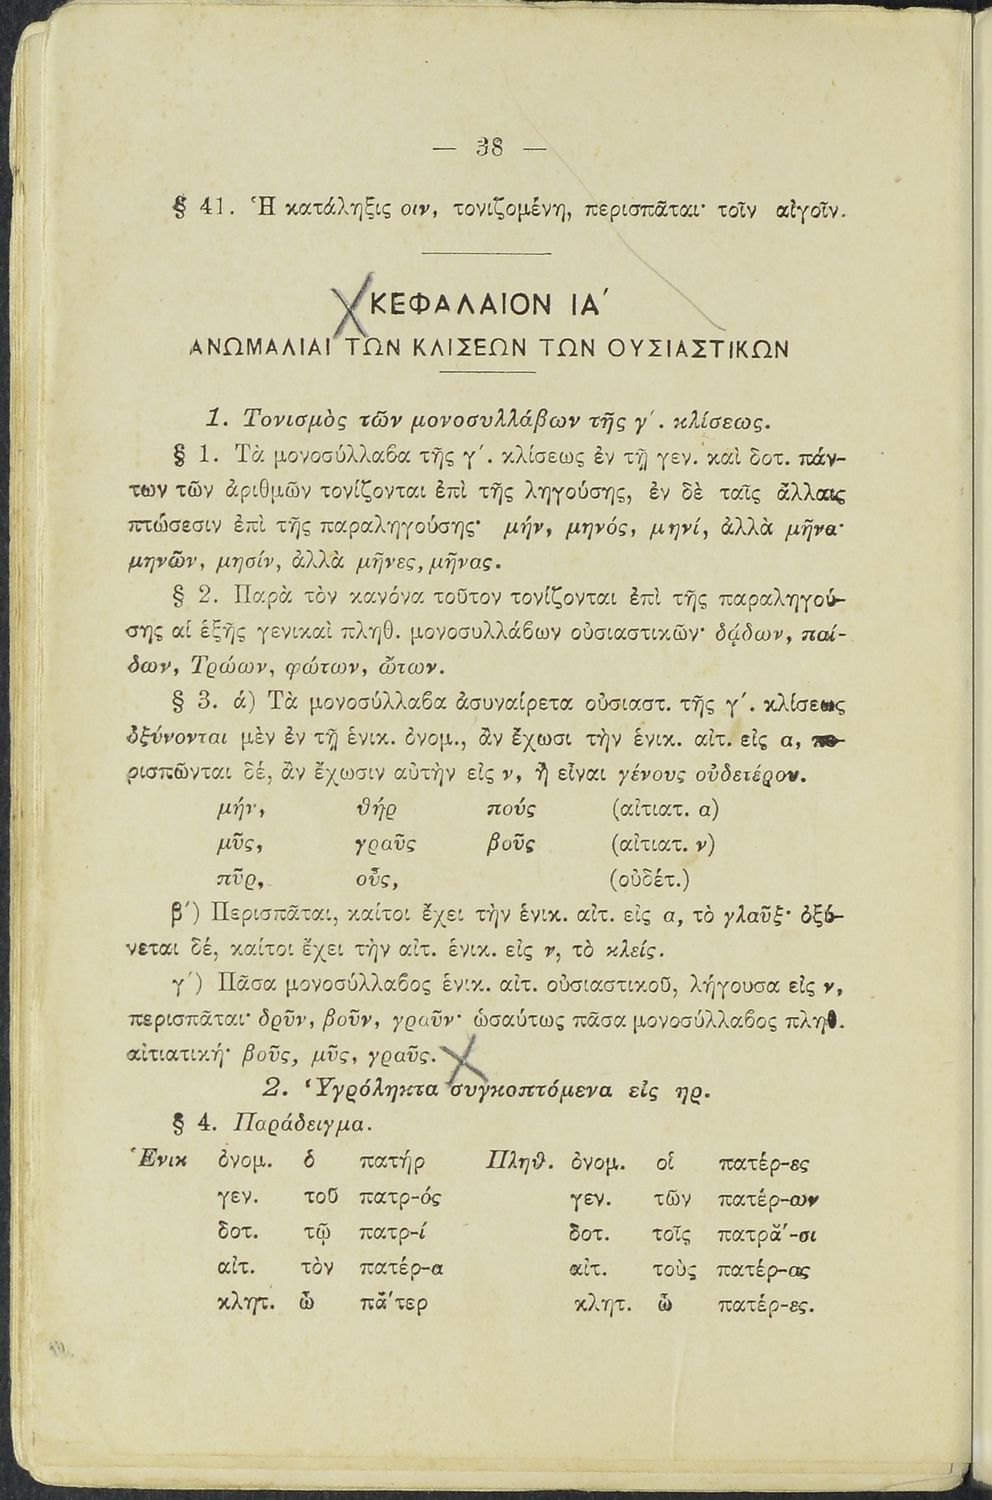 — 38 —
§ 41. Ἡ κατάληξις οιν, τονιζομένη, περισπᾶται· τοῖν αἰγοῖν.
ΚΕΦΑΛΑΙΟΝ ΙΑ΄
ΑΝΩΜΑΛΙΑΙ ΤΩΝ ΚΛΙΣΕΩΝ ΤΩΝ ΟΥΣΙΑΣΤΙΚΩΝ
1. Τονισμὸς τῶν μονοσυλλάβων τῆς γ΄. κλίσεως.
§ 1. Τὰ μονοσύλλαβα τῆς γ΄. κλίσεως ἐν τῇ γεν. καὶ δοτ. πάν-
των τῶν ἀριθμῶν τονίζονται ἐπὶ τῆς ληγούσης, ἐν δὲ ταῖς ἄλλαις
πτώσεσιν ἐπὶ τῆς παραληγούσης· μήν, μηνός, μηνί, ἀλλὰ μῆνα·
μηνῶν, μησίν, ἀλλὰ μῆνες, μῆνας.
§ 2. Παρὰ τὸν κανόνα τοῦτον τονίζονται ἐπὶ τῆς παραληγού-
σης αἱ ἑξῆς γενικαὶ πληθ. μονοσυλλάβων οὐσιαστικῶν· δᾴδων, παί-
δων, Τρώων, φώτων, ὤτων.
§ 3. ά) Τὰ μονοσύλλαβα ἀσυναίρετα οὐσιαστ. τῆς γ΄. κλίσεως
ὀξύνονται μὲν ἐν τῇ ἑνικ. ὀνομ., ἂν ἔχωσι τὴν ἑνικ. αἰτ. εἰς α, πε-
ρισπῶνται δέ, ἂν ἔχωσιν αὐτὴν εἰς ν, ἢ εἶναι γένους οὐδετέρου.
μήν, θήρ πούς (αἰτιατ. α)
μῦς, γραῦς βοῦς (αἰτιατ. ν)
πῦρ, οὖς, (οὐδέτ.)
β΄) Περισπᾶται, καίτοι ἔχει τὴν ἑνικ. αἰτ. εἰς α, τὸ γλαῦξ· ὀξύ-
νεται δέ, καίτοι ἔχει τὴν αἰτ. ἑνικ. εἰς ν, τὸ κλείς.
γ΄) Πᾶσα μονοσύλλαβος ἑνικ. αἰτ. οὐσιαστικοῦ, λήγουσα εἰς ν,
περισπᾶται· δρῦν, βοῦν, γραῦν· ὡσαύτως πᾶσα μονοσύλλαβος πληθ.
αἰτιατική· βοῦς, μῦς, γραῦς.
2. Ὑγρόληκτα συγκοπτόμενα εἰς ηρ.
§ 4. Παράδειγμα.
Ἑνικ ὀνομ. ὁ πατήρ Πληθ. ὀνομ. οἱ πατέρ-ες
γεν. τοῦ πατρ-ός γεν. τῶν πατέρ-ων
δοτ. τῷ πατρ-ί δοτ. τοῖς πατρᾰ΄-σι
αἰτ. τὸν πατέρ-α αἰτ. τοὺς πατέρ-ας
κλητ. ὦ πᾰ΄τερ κλητ. ὦ πατέρ-ες.